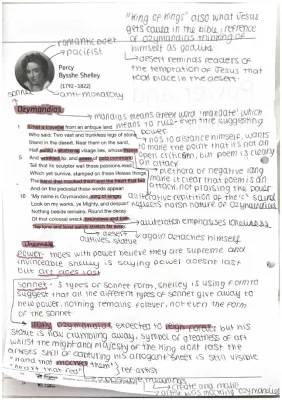 "King of Kings" also what Jesus
gets called in the bible, reference
of ozymandias thinking of
himself as godlike
romantic poet
pacifist
Percy
Bysshe Shelley
(1792 - 1822)
desert reminds readers of
the temptation of Jesus that
took place in the desert.
sonnet
anti-monarchy
Ozymandias
mandias means greek word 'mandate' which
means to rule - even title suggesting
power
1 I met a traveller from an antique land
Who said: Two vast and trunkless legs of stone
Stand in the desert. Near them on the sand,
Half sunk, a shattered visage lies, whose frown
5 And wrinkled lip, and sneer of cold command,
Tell that its sculptor well those passions read
Which yet survive, stamped on these lifeless things,
The hand that mocked them and the heart that fed;
And on the pedestal these words appear:
10 'My name is Ozymandias, king of kings:
Look on my works, ye Mighty, and despair!'
Nothing beside remains. Round the decay
Of that colossal wreck, boundless and bare
The lone and level sands stretch far away.
to distance himself, wants
to make the point that it's not an
open criticism, but poem is clearly
an attack
plethora of negative lang
make it clear that poem is an
attack, not praising the power
alliteration emphasises
again detaches himself
desert
outlives statue
Themes
power - those with power believe they are supreme and
invincible shelley is saying power doesnt last
but art does last
sonnet - 3 types of sonnet form, Shelley is using form to
suggest that all the different types of sonnet give away to
new power, nothing remains forever, not even the form
of the sonnet
ozymandias, expected to reign forever but his
statue is now crumbling away, symbol of greatness of art
whilst the might and majesty of the king dont last the
artists skill of capturing his arrogant sneer is still visible
"hand that mocked them"
"heart that fed"
ref artist
create and make
artist was mocking ozymandias